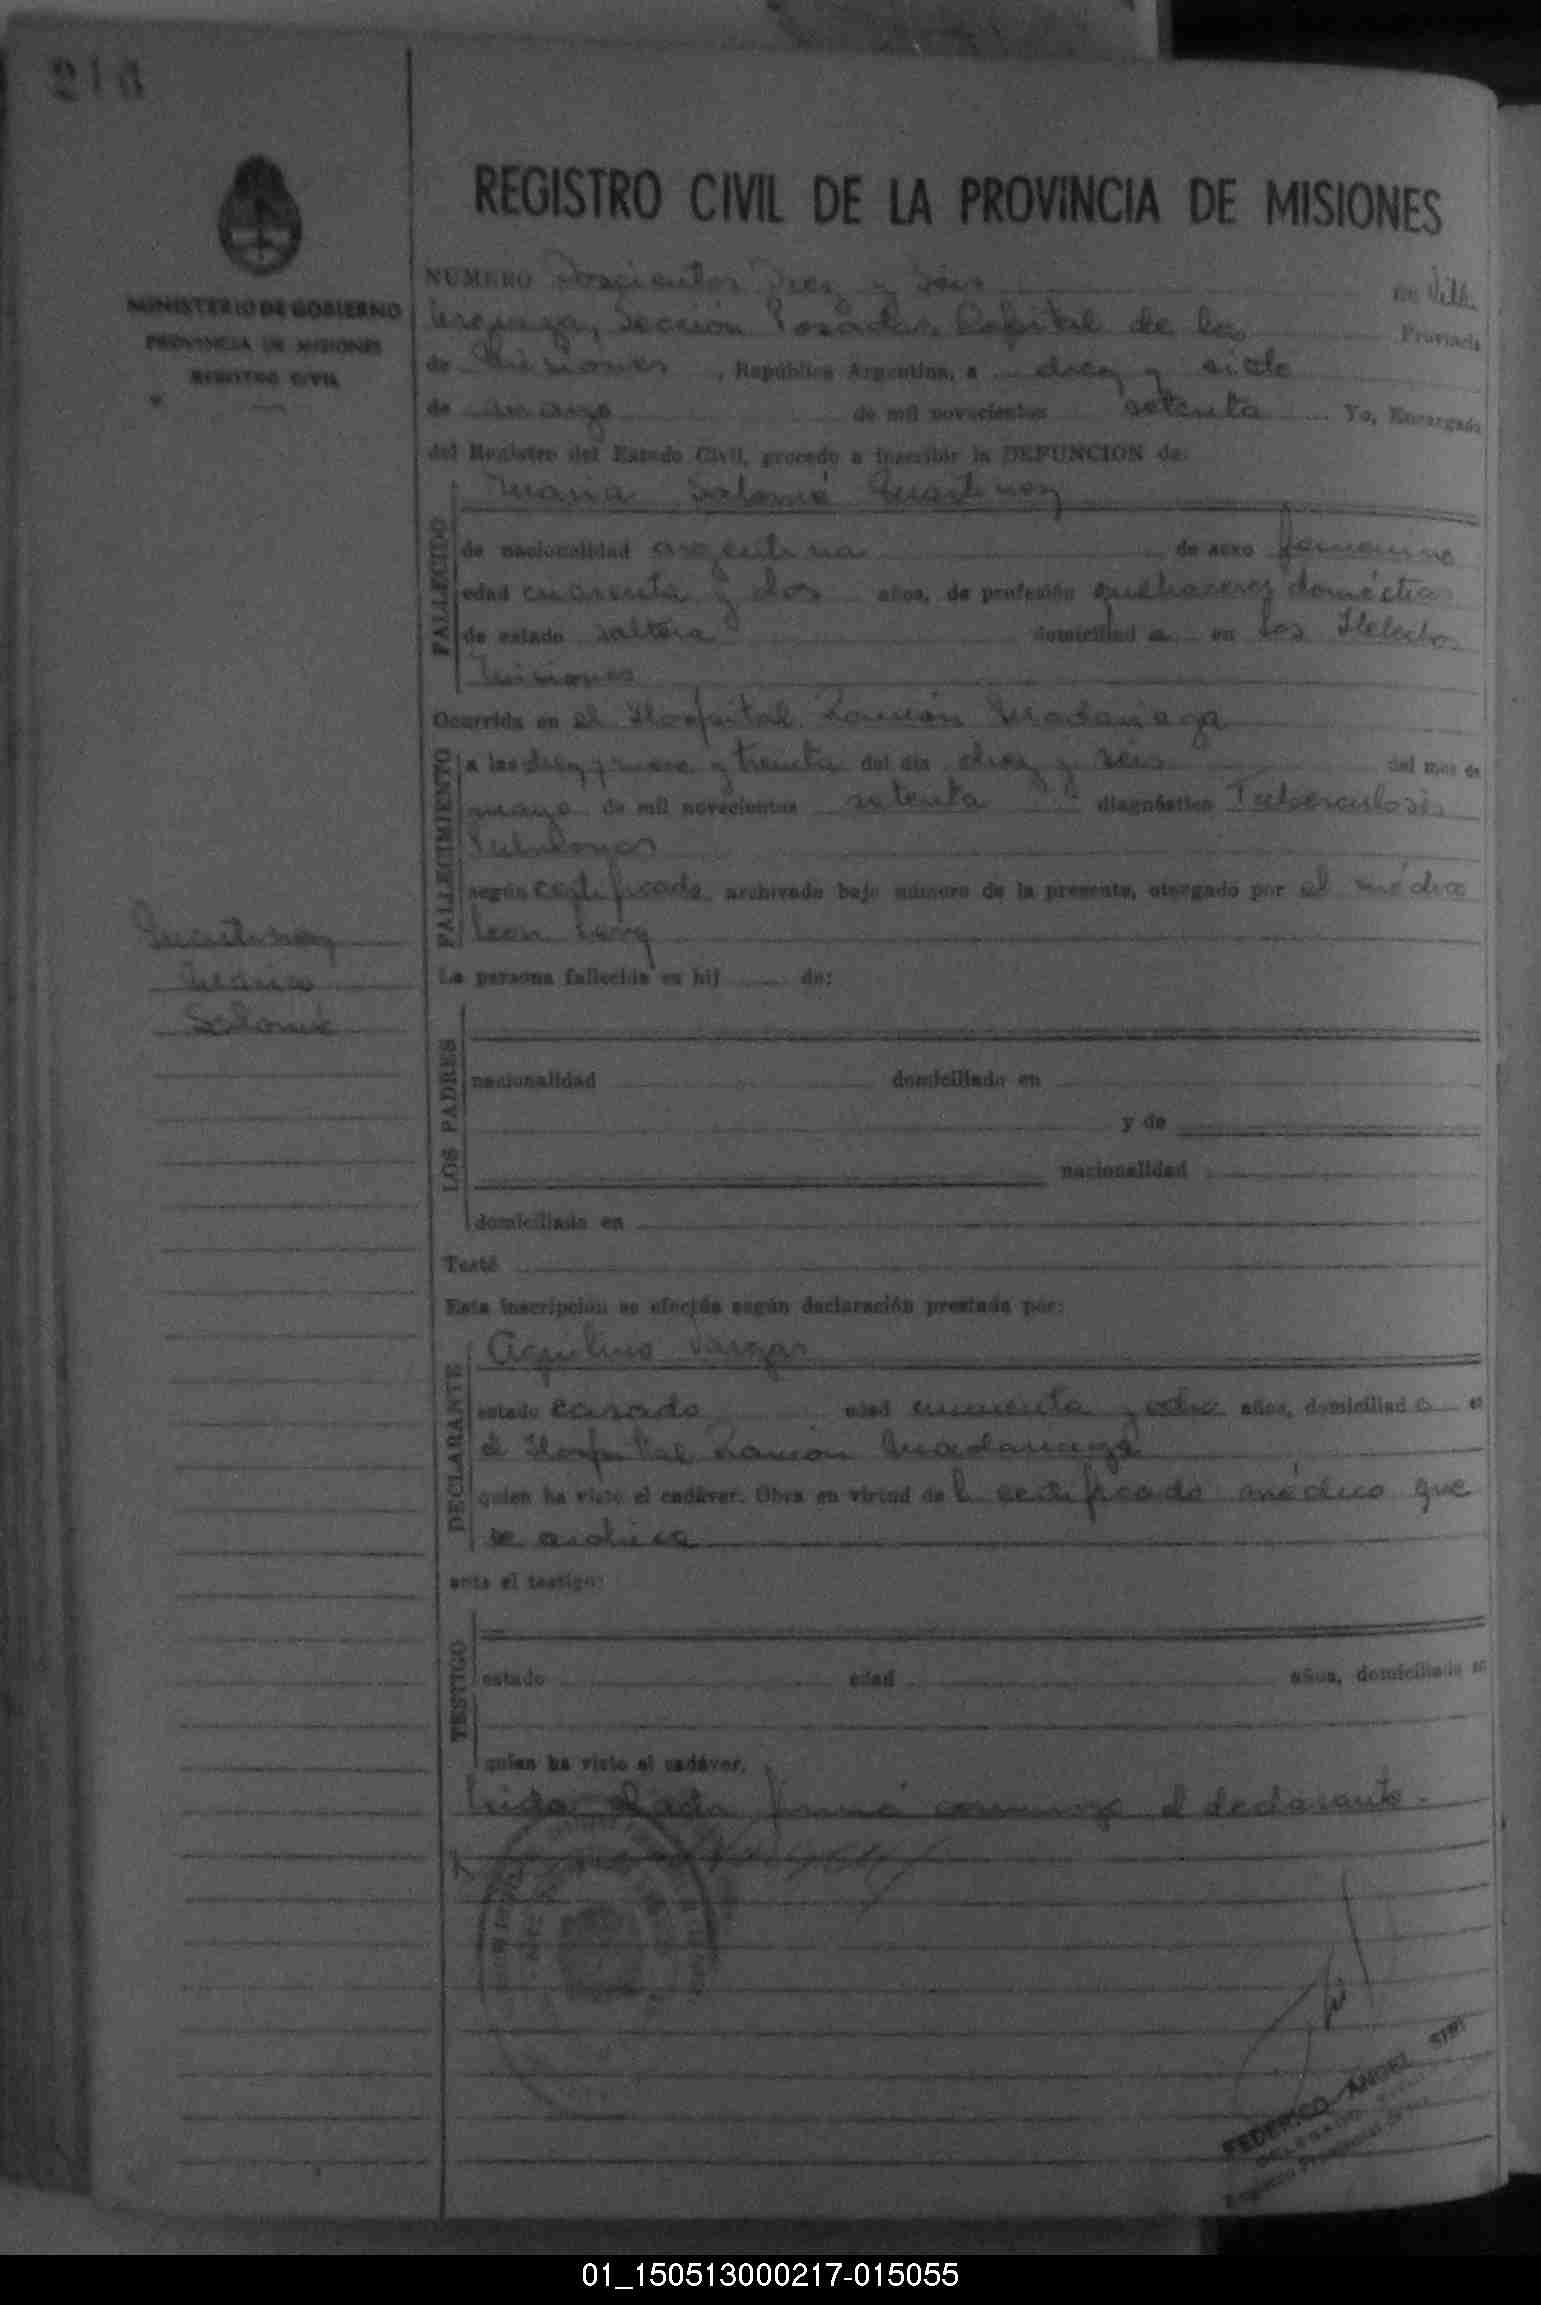 216
REGISTRO CIVIL DE LA PROVINCIA DE MISIONES
MINISTERIO DE GOBIERNO
PROVINCIA DE MISIONES
REGISTRO CIVIL
NUMERO Doscientos Diez y Séis en Villa
Urquiza, Sección Posadas, Capital de la Provincia
de Misiones, República Argentina, a diez y siete
de de mil novecientos setenta Yo, Encargado
del Registro del Estado Civil, procedo a inscribir la DEFUNCION de:
FALLECIDO
Maria Salomé Martinez
de nacionalidad argentina de sexo femenino
edad cuarenta y dos años, de profesión quehaceres domésticos
de estado soltera domiciliad a en Los Helechos
Misiones
Ocurrida en el Hospital Ramón Madariaga
FALLECIMIENTO
a las diez y nueve y treinta del día diez y séis del mes de
mayo de mil novecientos setenta diagnóstico Tuberculosis
Pulmonar
según certificado archivado bajo número de la presente, otorgado por el médico
Leon
La persona fallecida es hij de:
Martinez
Maria
Salomé
LOS PADRES
nacionalidad domiciliado en
y de
nacionalidad
domiciliado en
Testó
Esta inscripción se efectúa según declaración prestada por:
DECLARANTE
Aquilino Vargas
estado casado edad años, domiciliad o e
el Hospital Ramón Madariaga
quien ha visto el cadáver. Obra en virtud de l certificado médico que
se archiva
ante el testigo:
TESTIGO
estado edad años, domiciliado en
quien ha visto el cadáver.
Leida el acta firmó conmigo el declarante.
FEDERICO ANGEL
DELEGADO
01_150513000217-015055